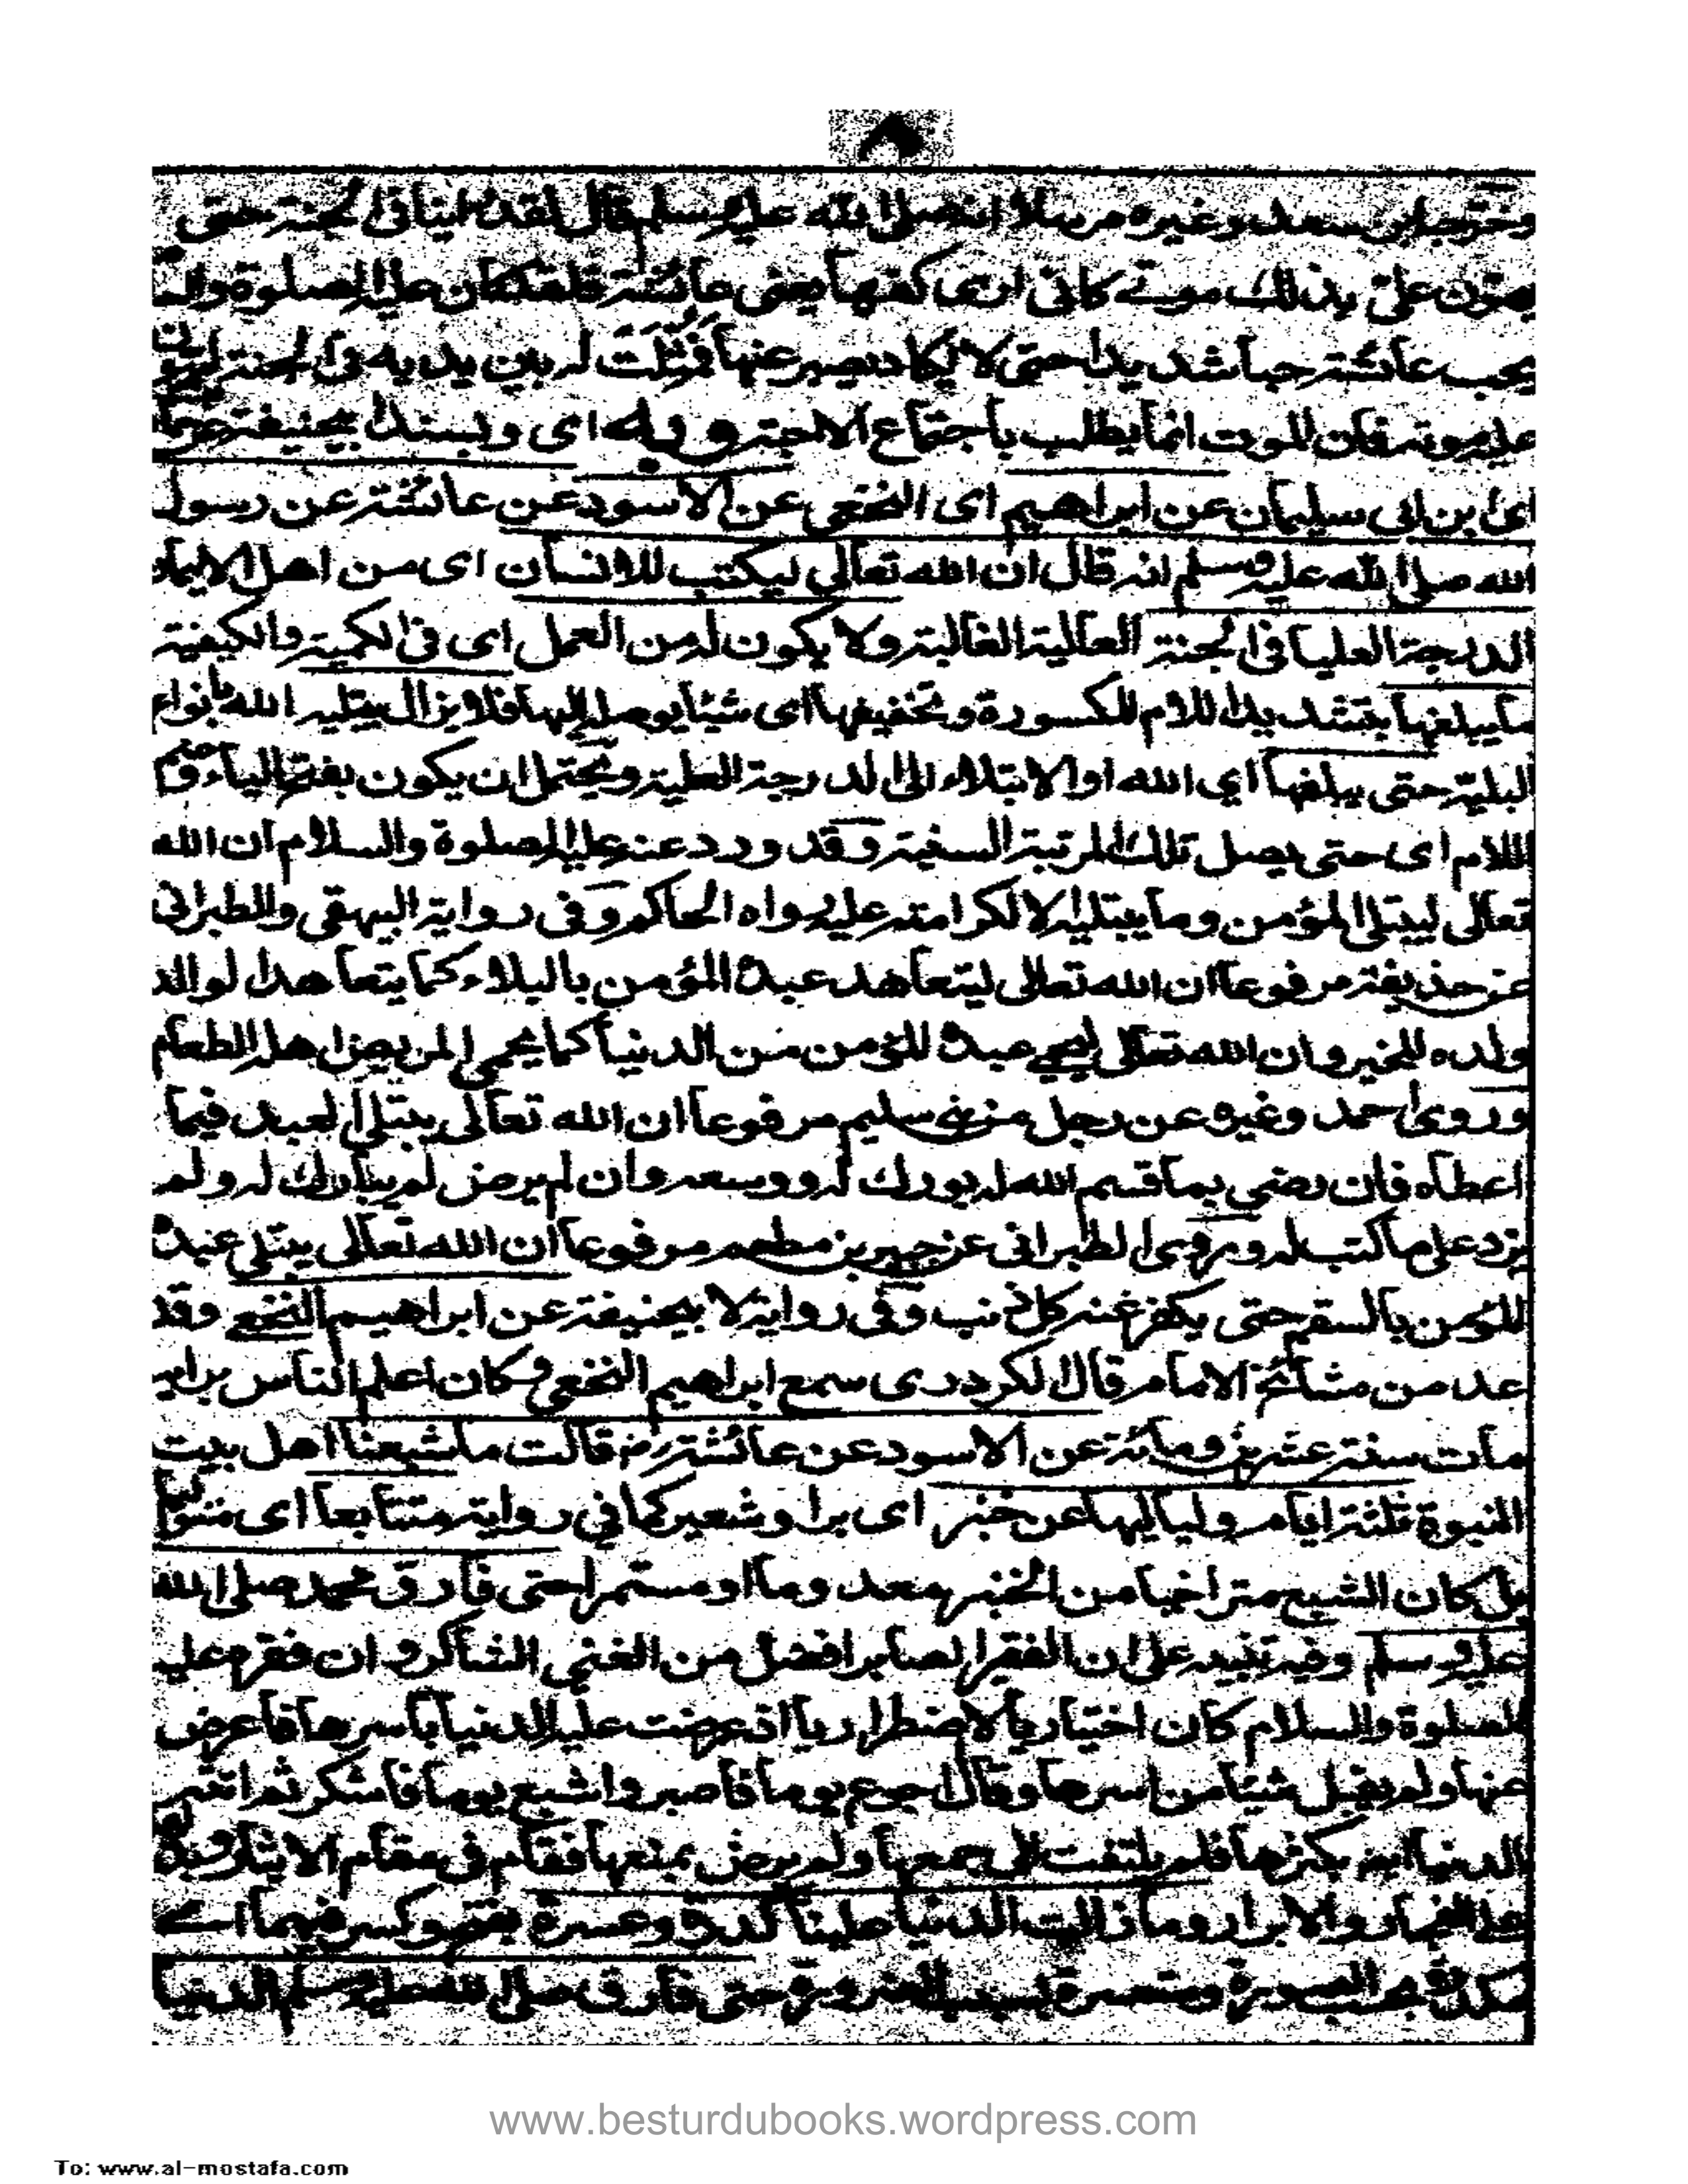 ٨
وخرجه ابن سعد وغيره مرسلا انه صلى الله عليه وسلم قال لقد رايتها فى الجنة حتى
يهون على بذلك موتى كانى ارى كفيها يعنى عائشة فلقد كان عليه الصلوة والسلام
يحب عائشة حبا شديدا حتى لا يكاد يصبر عنها فمثلت له بين يديه فى الجنة ليهون
عليه موته فان الموت انما يطلب باجتماع الاحبة وبه اى وبسند ابيحنيفة عن حماد
اى ابن ابى سليمان عن ابراهيم اى النخعى عن الاسود عن عائشة عن رسول
الله صلى الله عليه وسلم انه قال ان الله تعالى ليكتب للانسان اى من اهل الايمان
الدرجة العليا فى الجنة العالية الغالبة ولا يكون له من العمل اى فى الكمية والكيفية
ما يبلغها بتشديد اللام المكسورة وتخفيفها اى شيئا يوصله اليها فلا يزال يبتليه الله بانواع
البلية حتى يبلغها اى الله او الابتلاء الى الدرجة العلية ويحتمل ان يكون بفتح الياء وضم
اللام اى حتى يصل تلك المرتبة السنية وقد ورد عنه عليه الصلوة والسلام ان الله
تعالى ليبتلى المؤمن وما يبتليه الا لكرامته عليه رواه الحاكم وفى رواية البيهقى والطبرانى
عن حذيفة مرفوعا ان الله تعالى ليتعاهد عبده المؤمن بالبلاء كما يتعاهد الوالد
ولده بالخير وان الله تعالى ليحمى عبده المؤمن من الدنيا كما يحمى المريض اهله الطعام
وروى احمد وغيره عن رجل من بنى سليم مرفوعا ان الله تعالى يبتلى العبد فيما
اعطاه فان رضى بما قسم الله له بورك له ووسعه وان لم يرض لم يبارك له ولم
يزد على ما كتب له وروى الطبرانى عن جبير بن مطعم مرفوعا ان الله تعالى يبتلى عبده
المؤمن بالسقم حتى يكفر عنه كل ذنب وفى رواية لابيحنيفة عن ابراهيم النخعى وقد
عد من مشائخ الامام قال الكردرى سمع ابراهيم النخعى وكان اعلم الناس برايه
مات سنة عشرين ومائة عن الاسود عن عائشة رض قالت ما شبعنا اهل بيت
النبوة ثلثة ايام ولياليها عن خبز اى برا وشعير كما فى رواية متتابعا اى متواليا
بل كان الشبع متراخيا من الخبز وما او مستمرا حتى فارق محمد صلى الله
عليه وسلم وفيه تنبيه على ان الفقير الصابر افضل من الغنى الشاكر وان فقره عليه
الصلوة والسلام كان اختياريا لا اضطراريا اذ عرضت عليه الدنيا باسرها فاعرض
عنها ولم يقبل شيئا من اسرها وقال اجوع يوما فاصبر واشبع يوما فاشكر ثم
الدنيا بكثرها فلم يلتفت الى جمعها ولم يرض بمنعها فقام فى مقام الايثار
على والابرار وما زالت الدنيا علينا كدرة وعسرة بفتح وكسر فيهما اى
مكدرة بحسب الصورة ومتعسرة بسبب الضرورة حتى فارق صلى الله عليه وسلم الدنيا
www.besturdubooks.wordpress.com
To: www.al-mostafa.com